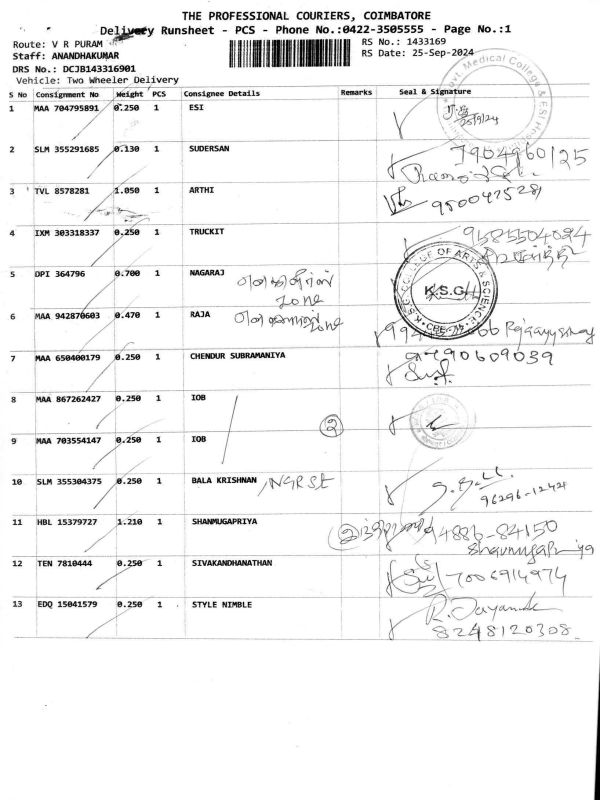 THE PROFESSIONAL COURIERS, COIMBATORE
Delivery Runsheet - PCS - Phone No.:0422-3505555 - Page No.:1
Route: V R PURAM RS No.: 1433169
Staff: ANANDHAKUMAR RS Date: 25-Sep-2024
DRS No.: DCJB143316901
Vehicle: Two Wheeler Delivery
S No Consignment No Weight PCS Consignee Details Remarks Seal & Signature
1 MAA 704795891 0.250 1 ESI
25/9/24
Govt Medical College & ESI
2 SLM 355291685 0.130 1 SUDERSAN 7904960125
3 TVL 8578281 1.050 1 ARTHI
4 IXM 303318337 0.250 1 TRUCKIT 9585504094
5 DPI 364796 0.700 1 NAGARAJ
zone
K.S.G COLLEGE OF ARTS & SCIENCE
K.S.G.
CBE-15
6 MAA 942870603 0.470 1 RAJA
zone
7 MAA 650400179 0.250 1 CHENDUR SUBRAMANIYA 9790609039
8 MAA 867262427 0.250 1 IOB
2
9 MAA 703554147 0.250 1 IOB
10 SLM 355304375 0.250 1 BALA KRISHNAN
96296-1244
11 HBL 15379727 1.210 1 SHANMUGAPRIYA 94886-84150
Shanmugapriya
12 TEN 7810444 0.250 1 SIVAKANDHANATHAN 7006914974
13 EDQ 15041579 0.250 1 STYLE NIMBLE
8248120308.